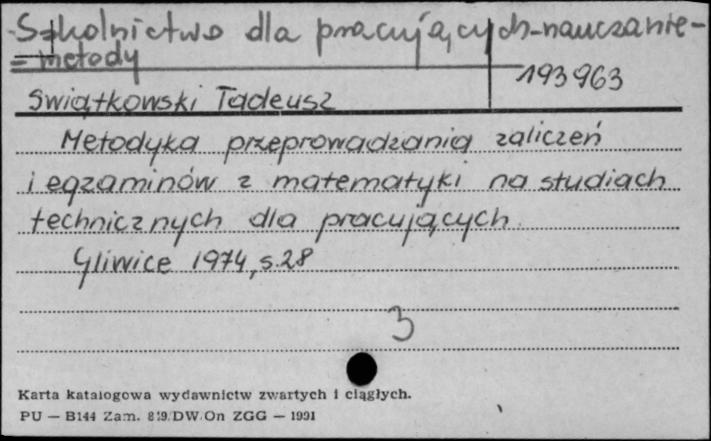 Szkolnictwo dla pracujących-nauczanie-
=metody
193963
Świątkowski Tadeusz
Metodyka przeprowadzania zaliczeń
i egzaminów z matematyki na studiach
technicznych dla pracujących.
Gliwice 1974, s.28
3
Karta katalogowa wydawnictw zwartych i ciągłych.
PU — B144 Zam. 819/DW.On ZGG — 1991